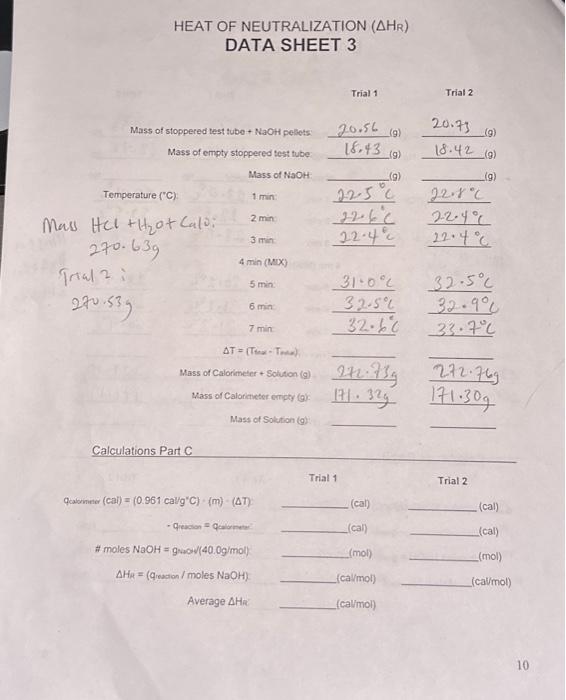 HEAT OF NEUTRALIZATION (ΔHR)
DATA SHEET 3
Trial 1 Trial 2
Mass of stoppered test tube + NaOH pellets: 20.56 (g) 20.73 (g)
Mass of empty stoppered test tube: 18.43 (g) 18.42 (g)
Mass of NaOH: (g) (g)
Temperature (°C): 1 min: 22.5°C 22.8°C
Mass HCl + H2O + Calo: 2 min: 22.6°C 22.4°C
270.63g 3 min: 22.4°C 22.4°C
4 min (MIX)
Trial 2: 5 min: 31.0°C 32.5°C
270.53g 6 min: 32.5°C 32.9°C
7 min: 32.6°C 33.7°C
ΔT = (Tfinal - Tinitial):
Mass of Calorimeter + Solution (g) 272.73g 272.76g
Mass of Calorimeter empty (g): 171.32g 171.30g
Mass of Solution (g):
Calculations Part C
Trial 1 Trial 2
qcalorimeter (cal) = (0.961 cal/g°C) · (m) · (ΔT): (cal) (cal)
- qreaction = qcalorimeter: (cal) (cal)
# moles NaOH = gNaOH/(40.0g/mol): (mol) (mol)
ΔHR = (qreaction / moles NaOH): (cal/mol) (cal/mol)
Average ΔHR: (cal/mol)
10